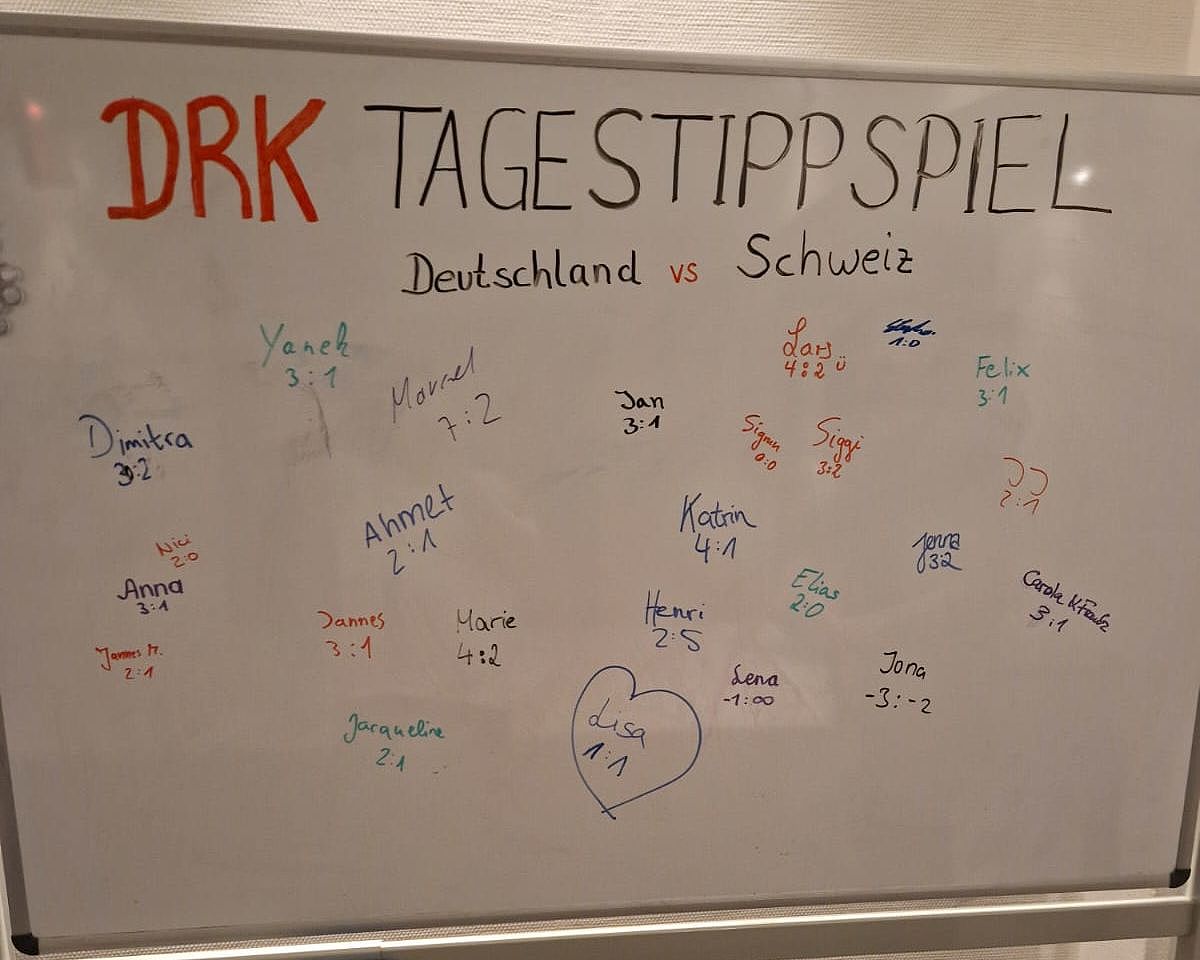 DRK TAGESTIPPSPIEL
Deutschland vs Schweiz
Yanek
3:1
Marcel
7:2
Lars
4:2 ü
1:0
Felix
3:1
Jan
3:1
Dimitra
3:2
Sigrun
0:0
Siggi
3:2
JJ
2:1
Ahmet
2:1
Katrin
4:1
Nici
2:0
Jenna
3:2
Anna
3:1
Elias
2:0
Carola
3:1
Jannes M.
2:1
Jannes
3:1
Marie
4:2
Henri
2:5
Lena
-1:∞
Jona
-3:-2
Jacqueline
2:1
Lisa
1:1